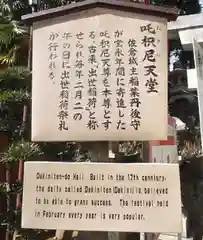 吒枳尼天堂
佐倉城主稲葉丹後守
が宝永年間に寄進した
吒枳尼天尊を本尊とす
る古来、出世稲荷と称
せられ毎年二月二の
午の日に出世稲荷祭礼
が行われる。
Dakiniten-do Hall Built in the 17th century,
the daily called Dakiniten(Dakini)is believed
to be able to grant success. The festival held
in February every year is very popular.